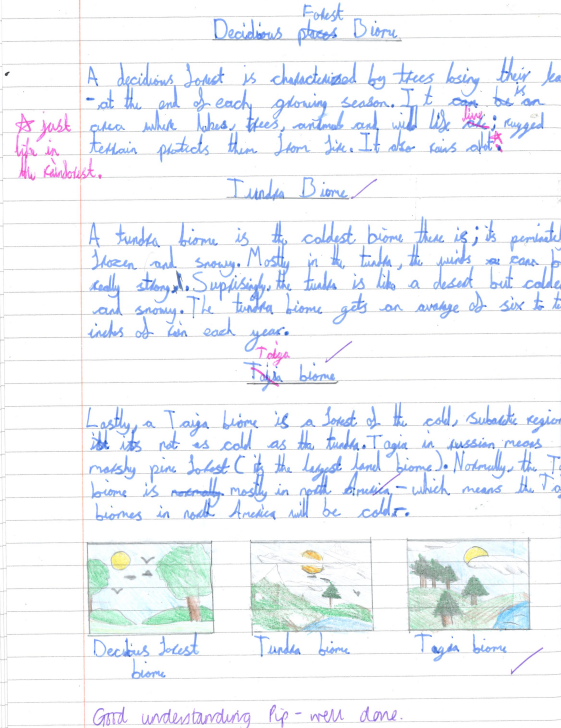 Forest
Decidious places Biome
A decidious forest is characterized by trees losing their lea
- at the end of each growing season. It can be is an
area where lakes, trees, animal and will life live; rugged
☆ just
terrain protects them from fire. It also rains alot☆.
life in
the rainforest.
Tundra Biome
A tundra biome is the coldest biome there is; its perminate
frozen and snowy. Mostly in the tundra, the winds can b
really strong. Suprisingly, the tundra is like a desert but colde
and snowy. The tundra biome gets an avarge of six to te
inches of rain each year.
Taiga
biome
Lastly, a Taiga biome is a forest of the cold, subarctic region
its not as cold as the tundra. Tagia in russian means
marshy pine forest (its the largest land biome). Normally, the Ta
biome is normally mostly in north America - which means the Ta
biomes in north America will be colder.
Decidious forest
biome
Tundra biome
Tagia biome
Good understanding Pip - well done.